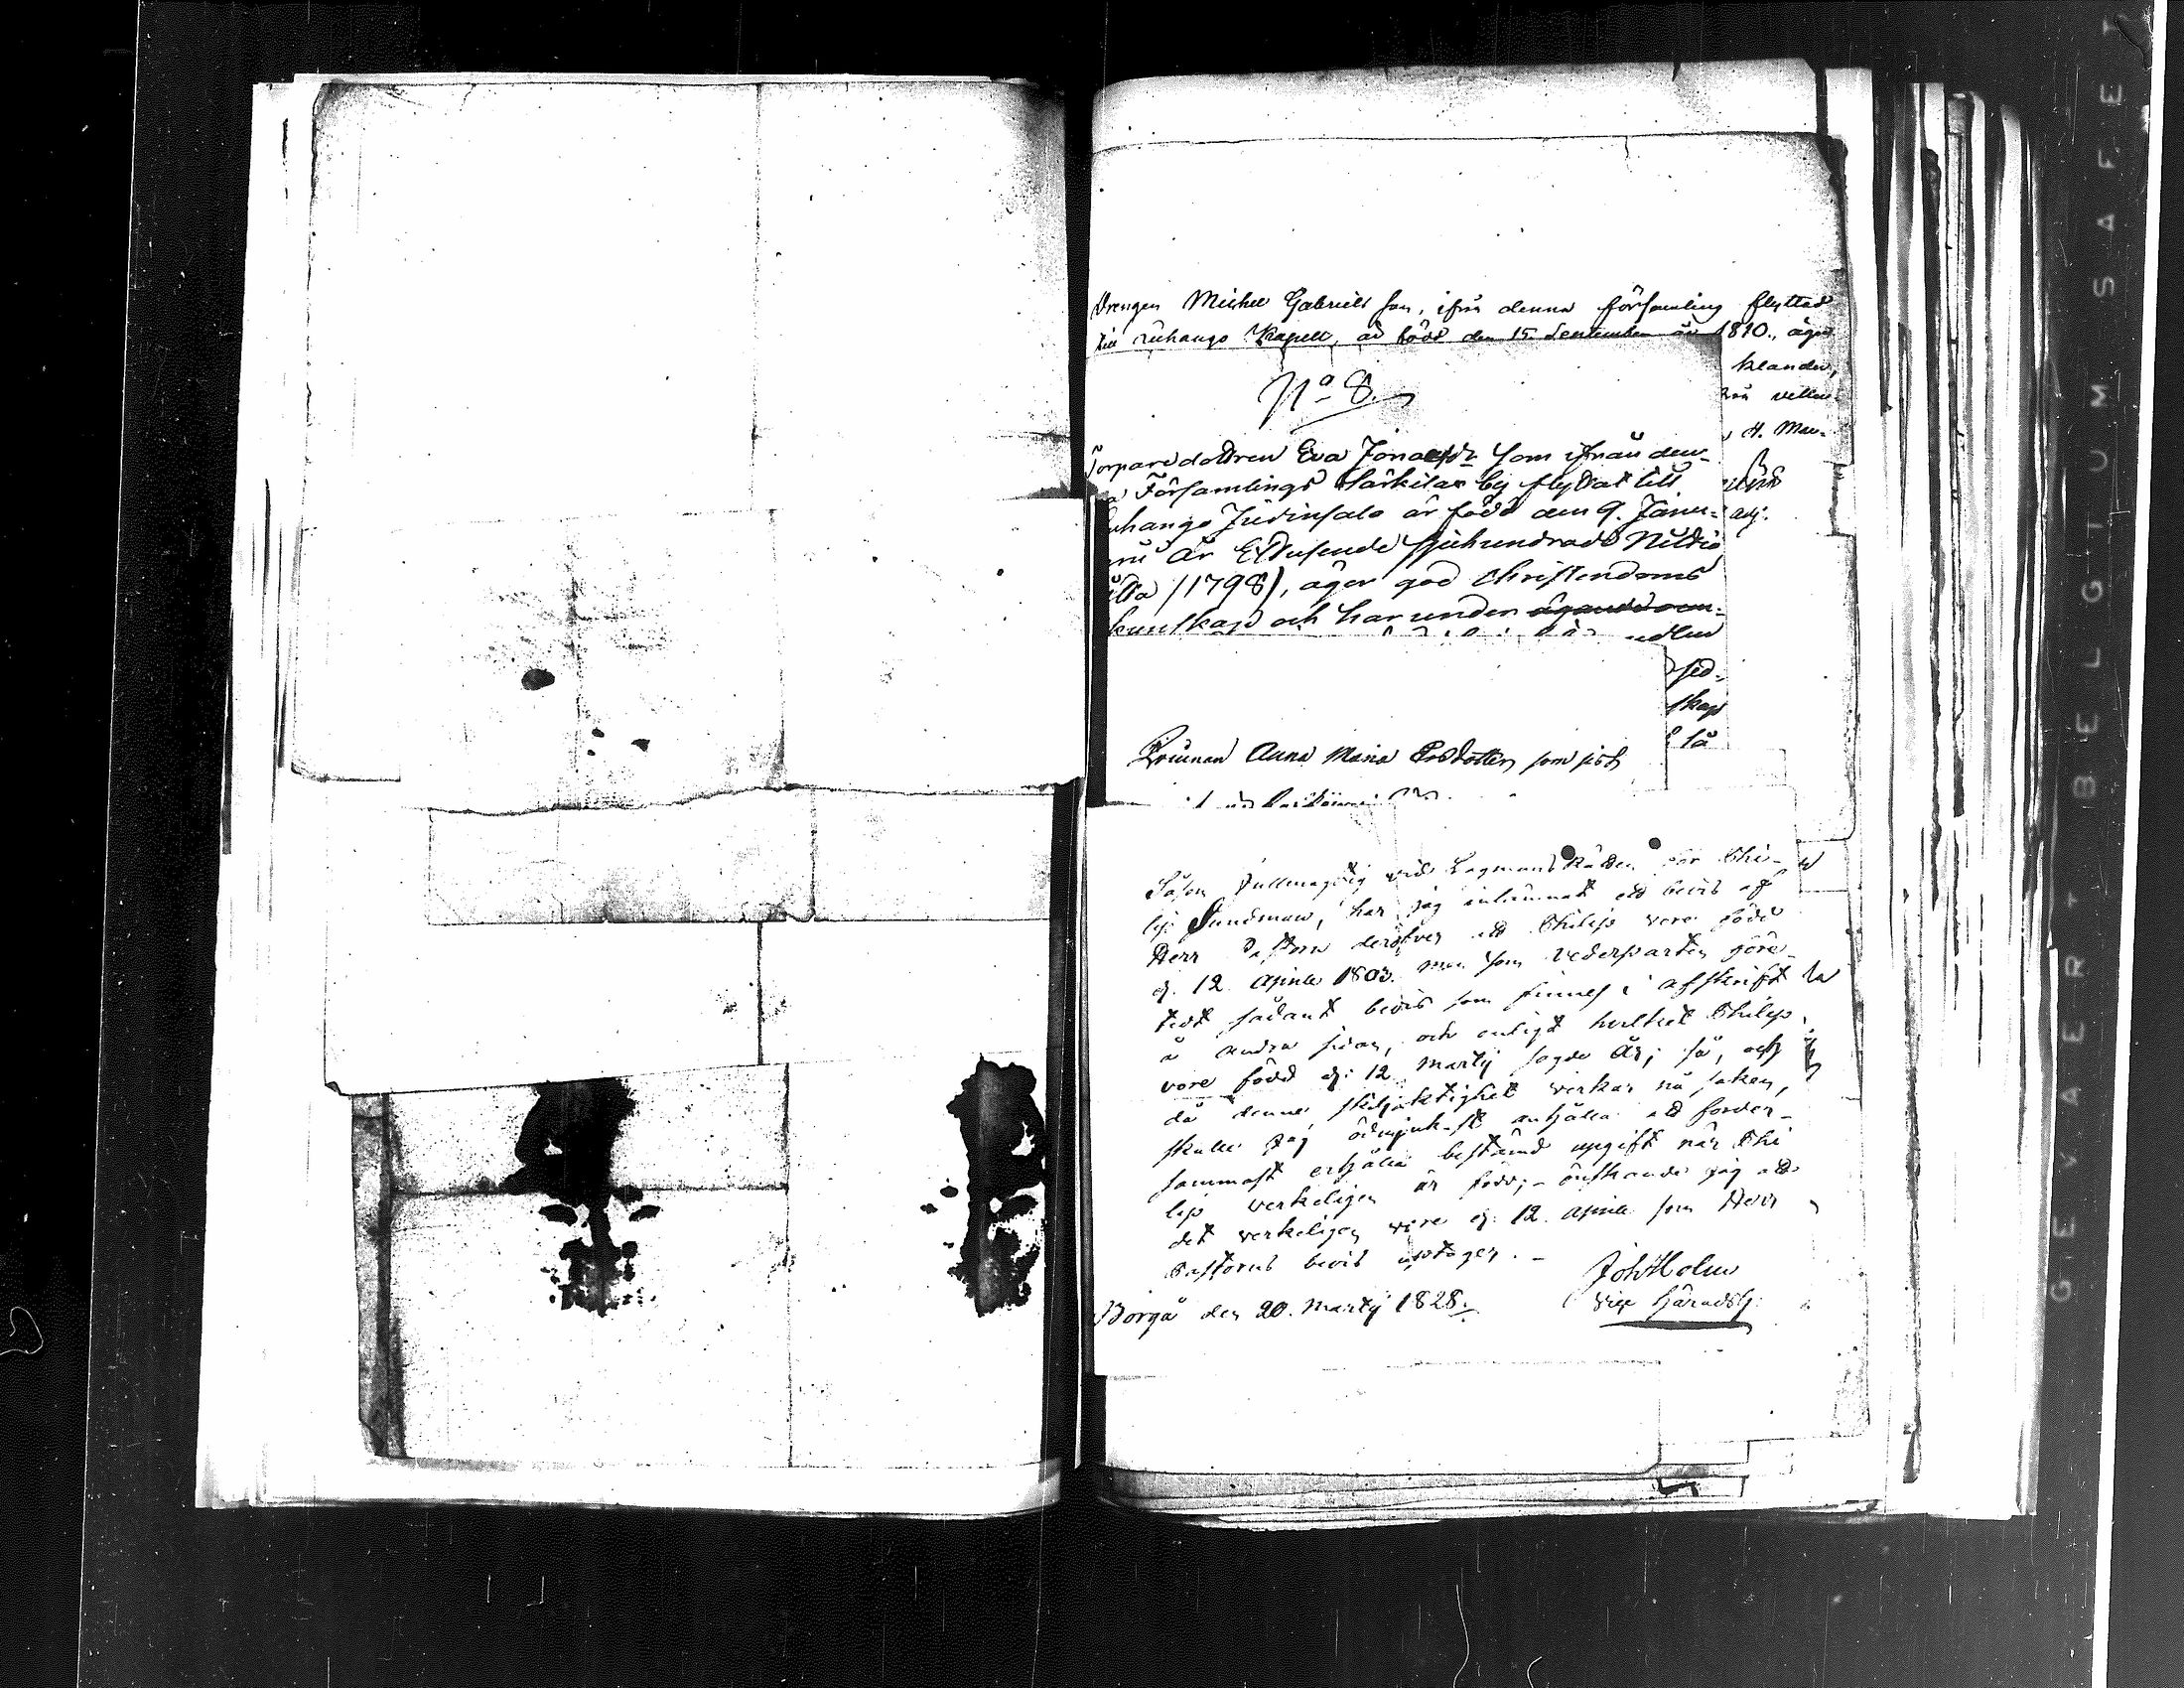 Drengen Michel Gabriels son, ifrån denna församling flyttad
till Kuhango Kapell, är född den 15 September år 1810., äger
klander,
H. Man-
No 8.
Torparedottren Eva Jonasdr som ifrån den-
na Församlings Särkilax by flyttat till
Kuhango Judinsalo är född den 9. Janu-
arii år Ettusende Sjuhundrade Nittio
åtta (1798), äger god Christendoms
kunskap och har under
sed-
skap
så
Qvinnan Anna Maria Ersdotter som sist
Såsom fullmägtig vid Lagmans Rätten för Phi-
lip Sundman, har jag inlämnat ett bevis af
Herr Pastorn deröfver att Philip vore född
d. 12 Aprill 1803. men som vederparten före-
tedt sådant bevis som finnes i afskrift
å andra sidan, och enligt hvilket Philip
vore född d: 12 Martij sagde år; så, och
då denna skiljaktighet verkar på saken,
skulle jag ödmjukast anhålla att forder-
sammast erhålla bestämd upgift när Phi
lip verkeligen är född; önskande jag att
det verkeligen vore d. 12. Aprill som Herr
Pastorns bevis uptager. -
Borgå den 20. Martij 1828.
Joh Holm
Vice Häradsh:
GEVAERT BELGIUM SAFET